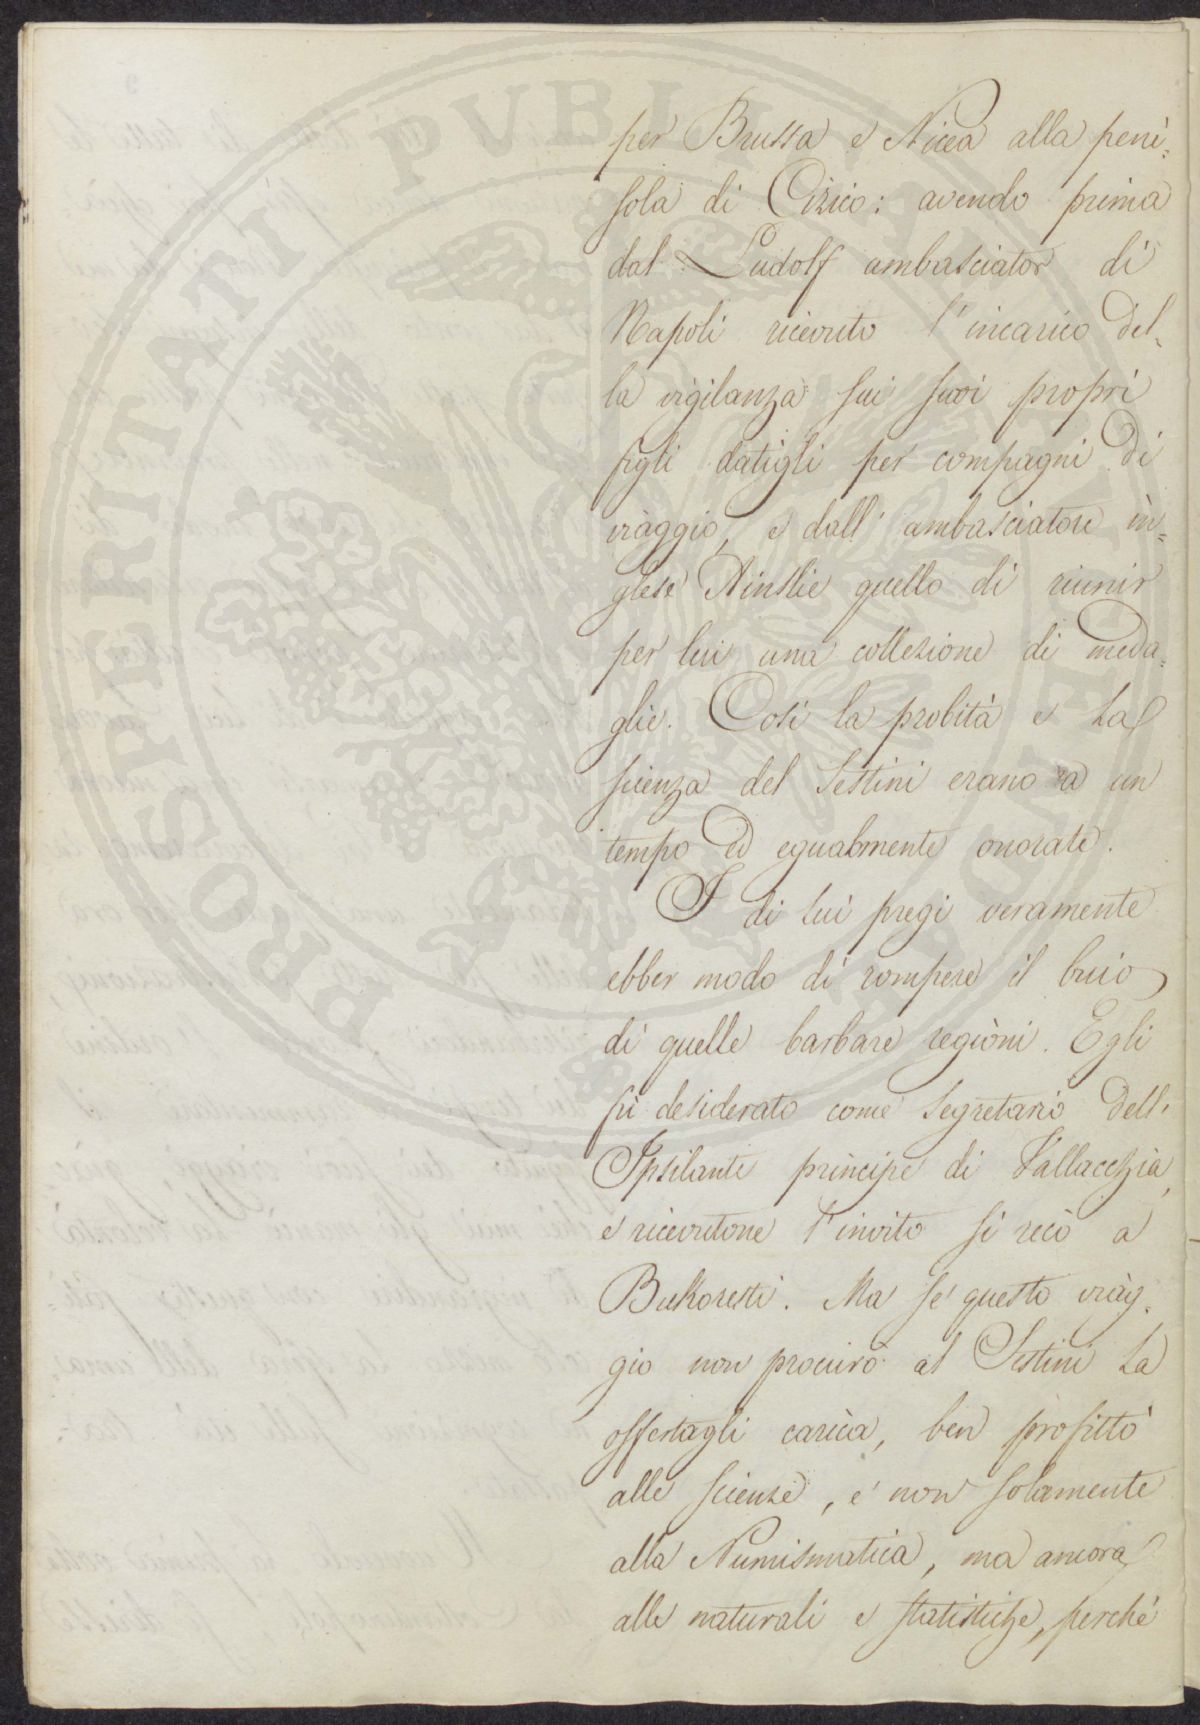 per Brussa e Nicea alla peni=
sola di Cizico: avendo prima
dal Ludolf ambasciator di
Napoli ricevuto l'incarico del=
la vigilanza sui suoi propri
figli datigli per compagni di
viaggio, e dall'ambasciatore in=
glese Ainslie quello di riunir
per lui una collezione di meda=
glie. Così la probità e la
scienza del Sestini erano a un
tempo ed egualmente onorate.
I di lui pregi veramente
ebber modo di rompere il buio
di quelle barbare regioni. Egli
fù desiderato come Segretario dell'
Ipsilante principe di Vallacchia,
e ricevutone l'invito si recò a
Bukoresti. Ma se questo viag=
gio non procurò al Sestini la
offertagli carica, ben profittò
alle scienze, e non solamente
alla Numismatica, ma ancora
alle naturali e statistiche, perché
PROSPERITATI PUBLICAE